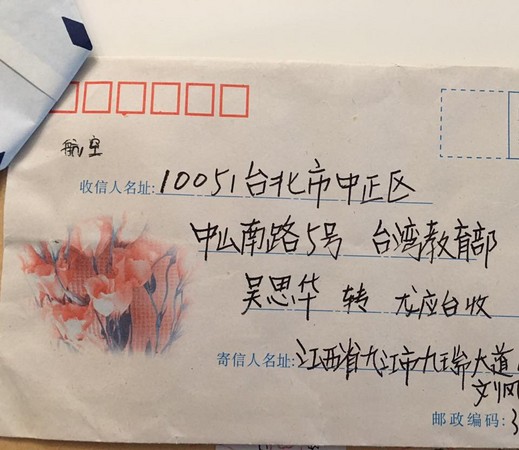 航空
收信人名址: 10051台北市中正区
中山南路5号 台湾教育部
吴思华 转 尤应台收
寄信人名址: 江西省九江市九瑞大道
刘凤
邮政编码: